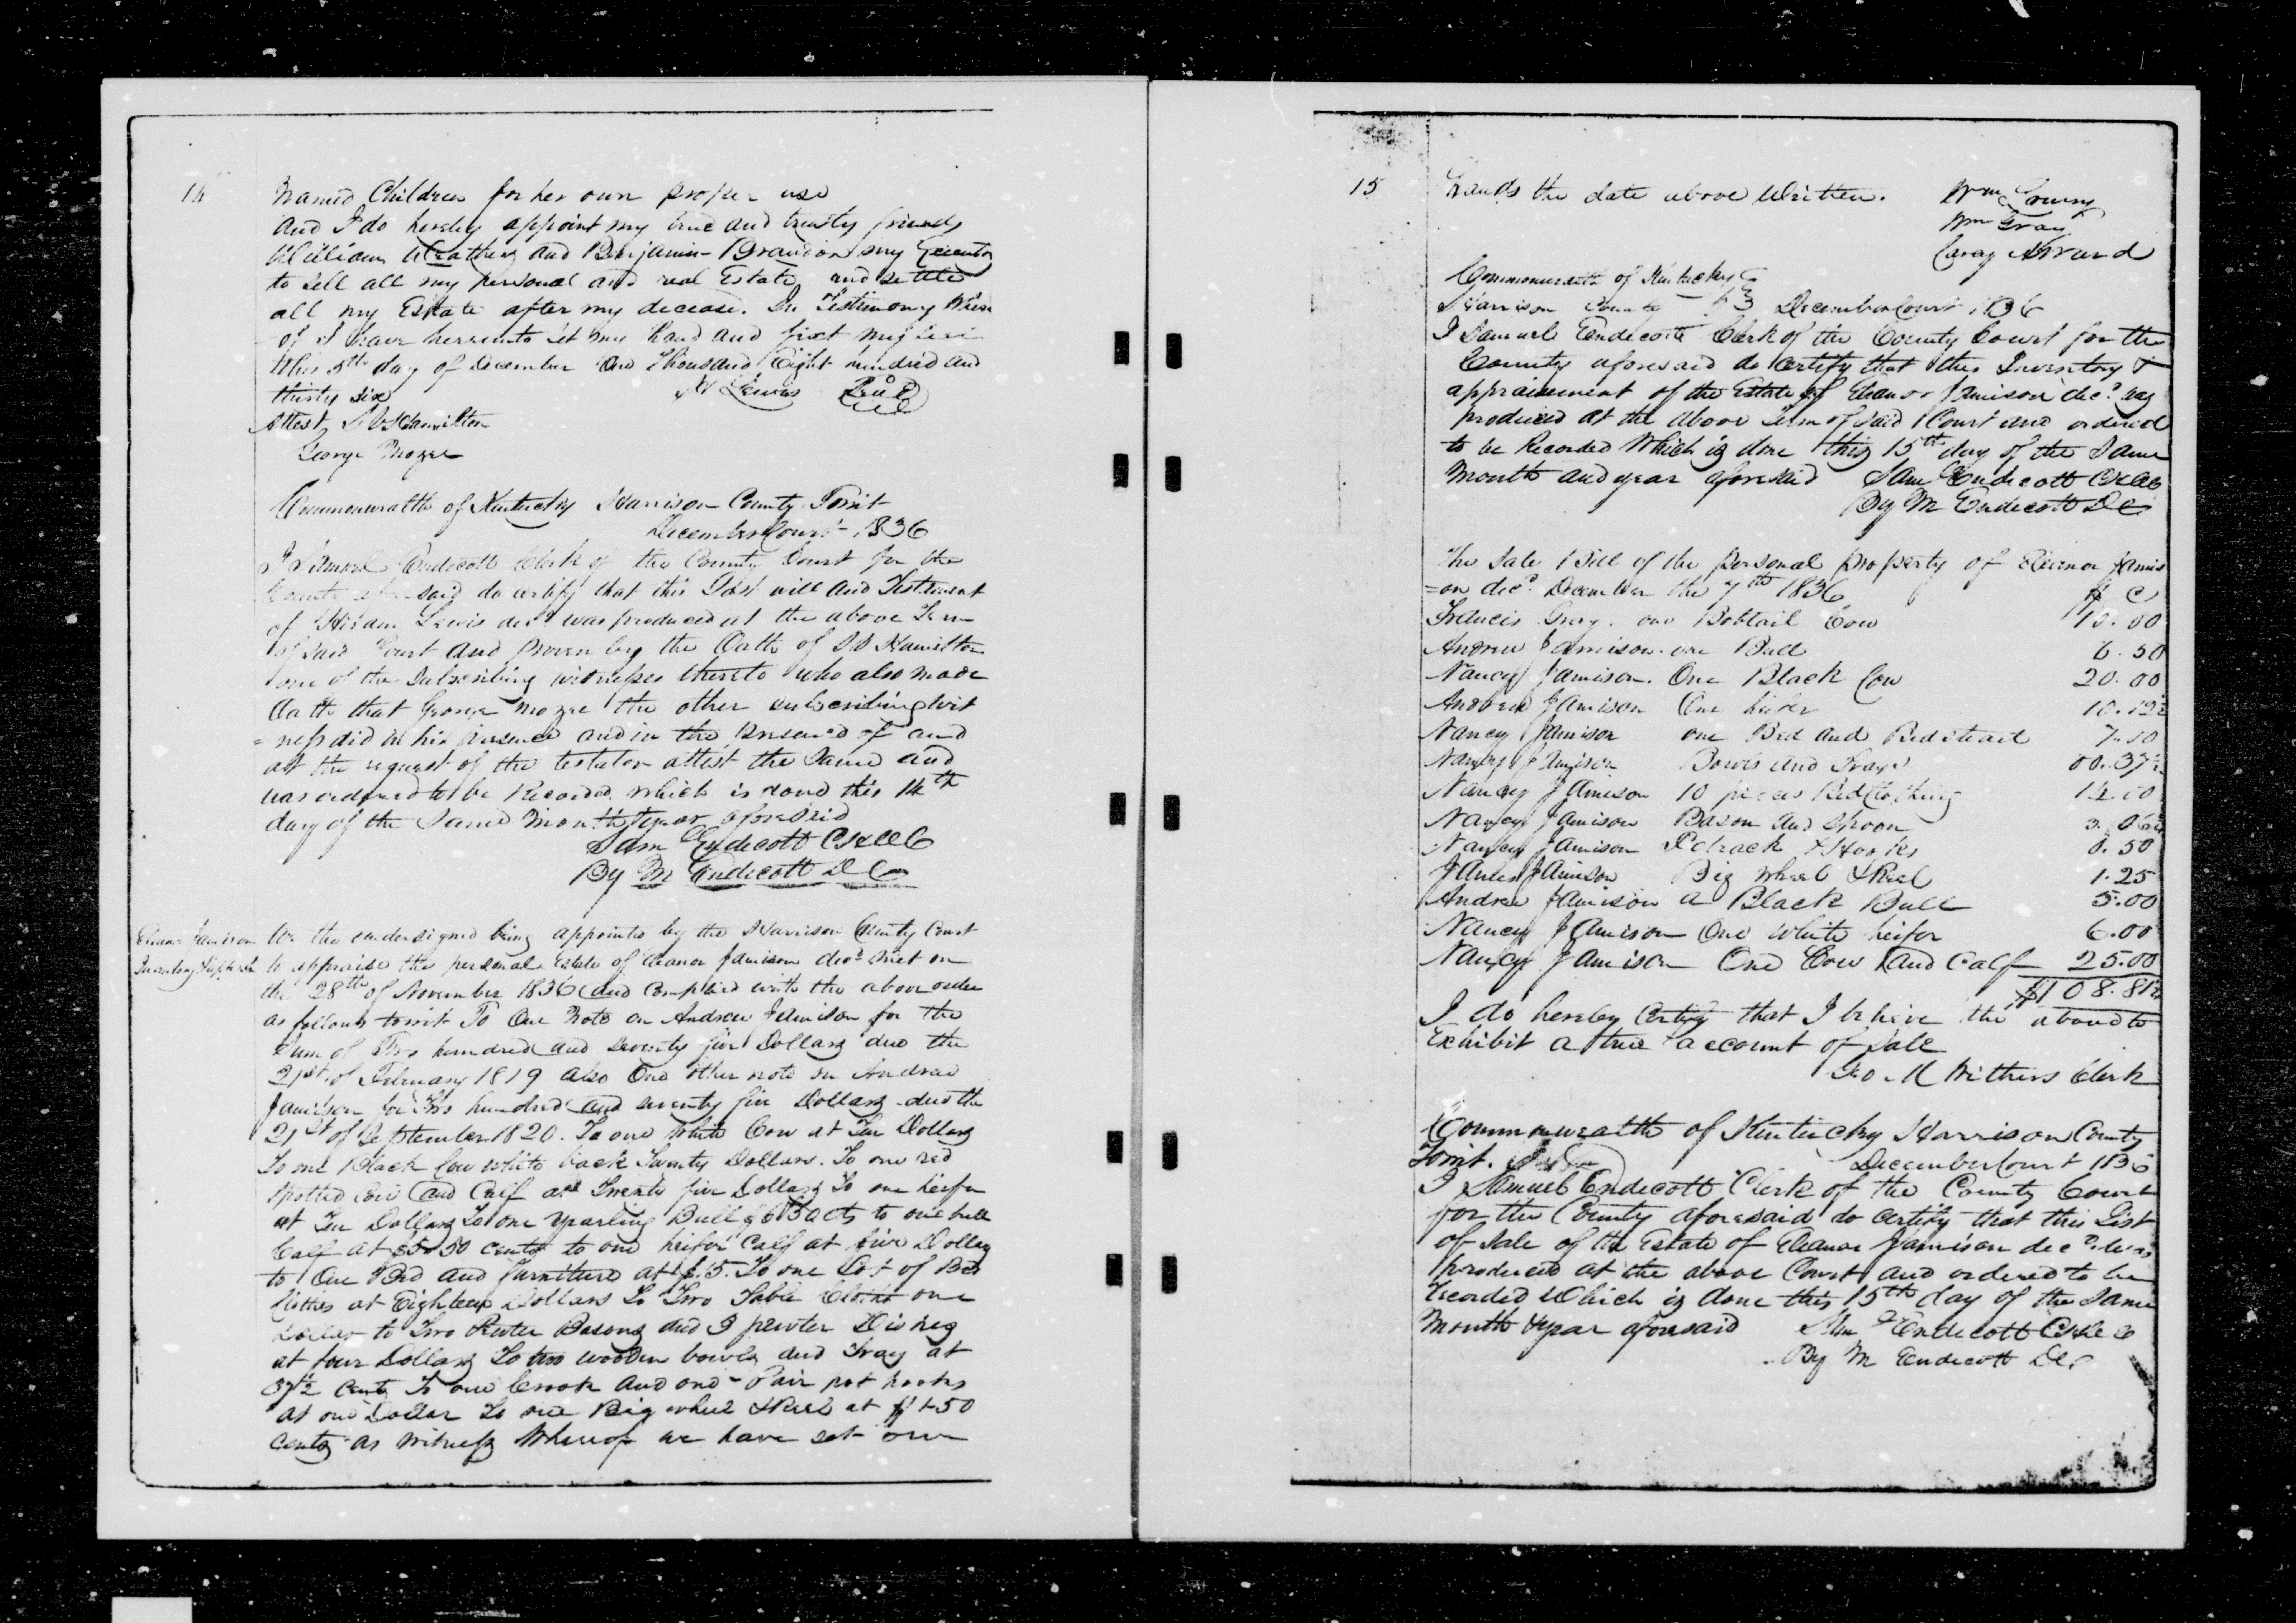 14
named Children for her own proper use
and I do hereby appoint my true and trusty friends
William and Benjamin Brandon my Executors
to sell all my personal and real Estate and settle
all my Estate after my decease. In Testimony Where
of I have hereunto set my hand and fixt my seal
this 5th day of December One Thousand Eight hundred and
thirty six H Lewis Seal
Attest Hamilton
George
Commonwealth of Kentucky Harrison County Towit
December Court 1836
I Samuel Endecott Clerk of the County Court for the
County aforesaid do certify that this Last will and Testiment
of Hiram Lewis decd was produced at the above Term
of said Court and proven by the Oath of Hamilton
one of the Subscribing witnesses thereto who also made
Oath that George the other subscribing wit
=ness did in his presence and in the presence of and
at the request of the testator attest the same and
was ordered to be Recorded which is done this 14th
day of the Same Month & year aforesaid
Sam Endecott
By M Endecott D C
Eleanor Jamison
Inventory &
We the undersigned being appointed by the Harrison County Court
to appraise the personal Estate of Eleanor Jamison decd met on
the 28th of November 1836 and complied with the above order
as follows towit To One Note on Andrew Jamison for the
Sum of Two hundred and seventy five Dollars due the
21st of February 1819 also One other note on Andrew
Jamison for Two hundred and seventy five Dollars due the
21st of September 1820. To one white Cow at Ten Dollars
To one Black Cow white back Twenty Dollars. To one red
spotted Cow and Calf at Twenty five Dollars To one heifer
at Ten Dollars To one yearling Bull $6 50 cts to one bull
Calf at 50 cents to one heifer Calf at five Dollars
to One Bed and furniture at $15. To one Lot of Bed
Clothes at Eighteen Dollars To Two Table Cloths one
Dollar to Two Pewter Basons and 3 pewter Dishes
at four Dollars To two wooden bowls and Tray at
37½ Cents To one Crook and one Pair pot hooks
at one Dollar To one Big wheel & Reel at $1 50
cents as Witness Whereof we have set our
15
hands the date above Written. Wm
Wm Gray
Commonwealth of Kentucky
Harrison County December Court 1836
I Samuel Endecott Clerk of the County Court for the
County aforesaid do certify that this Inventory &
appraisement of the Estate of Eleanor Jamison decd was
produced at the above Term of said Court and ordered
to be Recorded Which is done this 15th day of the Same
Month and year aforesaid Sam Endecott
By M Endecott D C
The Sale Bill of the personal property of Eleanor Jamis
=on decd. December the 7th 1836 $ C
Francis Gray. one Bobtail Cow 10.00
Andrew Jamison. one Bull 6.50
Nancy Jamison. One Black Cow 20.00
Andrew Jamison One heifer 10.12½
Nancy Jamison one Bed and Bedstead 7.50
Nancy Jamison Bowls and Trays 00.37½
Nancy Jamison 10 pieces Bed Clothing
Nancy Jamison Bason and Spoon
Nancy Jamison & Hooks 0.50
James Jamison Big wheel & Reel 1.25
Andrew Jamison a Black Bull 5.00
Nancy Jamison One White heifer 6.00
Nancy Jamison One Cow and Calf 25.00
$108.81½
I do hereby Certify that I believe the above to
Exhibit a true account of Sale
Geo. Withers Clerk
Commonwealth of Kentucky Harrison County
Towit. December Court 1836
I Samuel Endecott Clerk of the County Court
for the County aforesaid do certify that this List
of Sale of the Estate of Eleanor Jamison decd. was
produced at the above Court and ordered to be
recorded Which is done this 15th day of the same
Month & year aforesaid Sam Endecott
By M Endecott